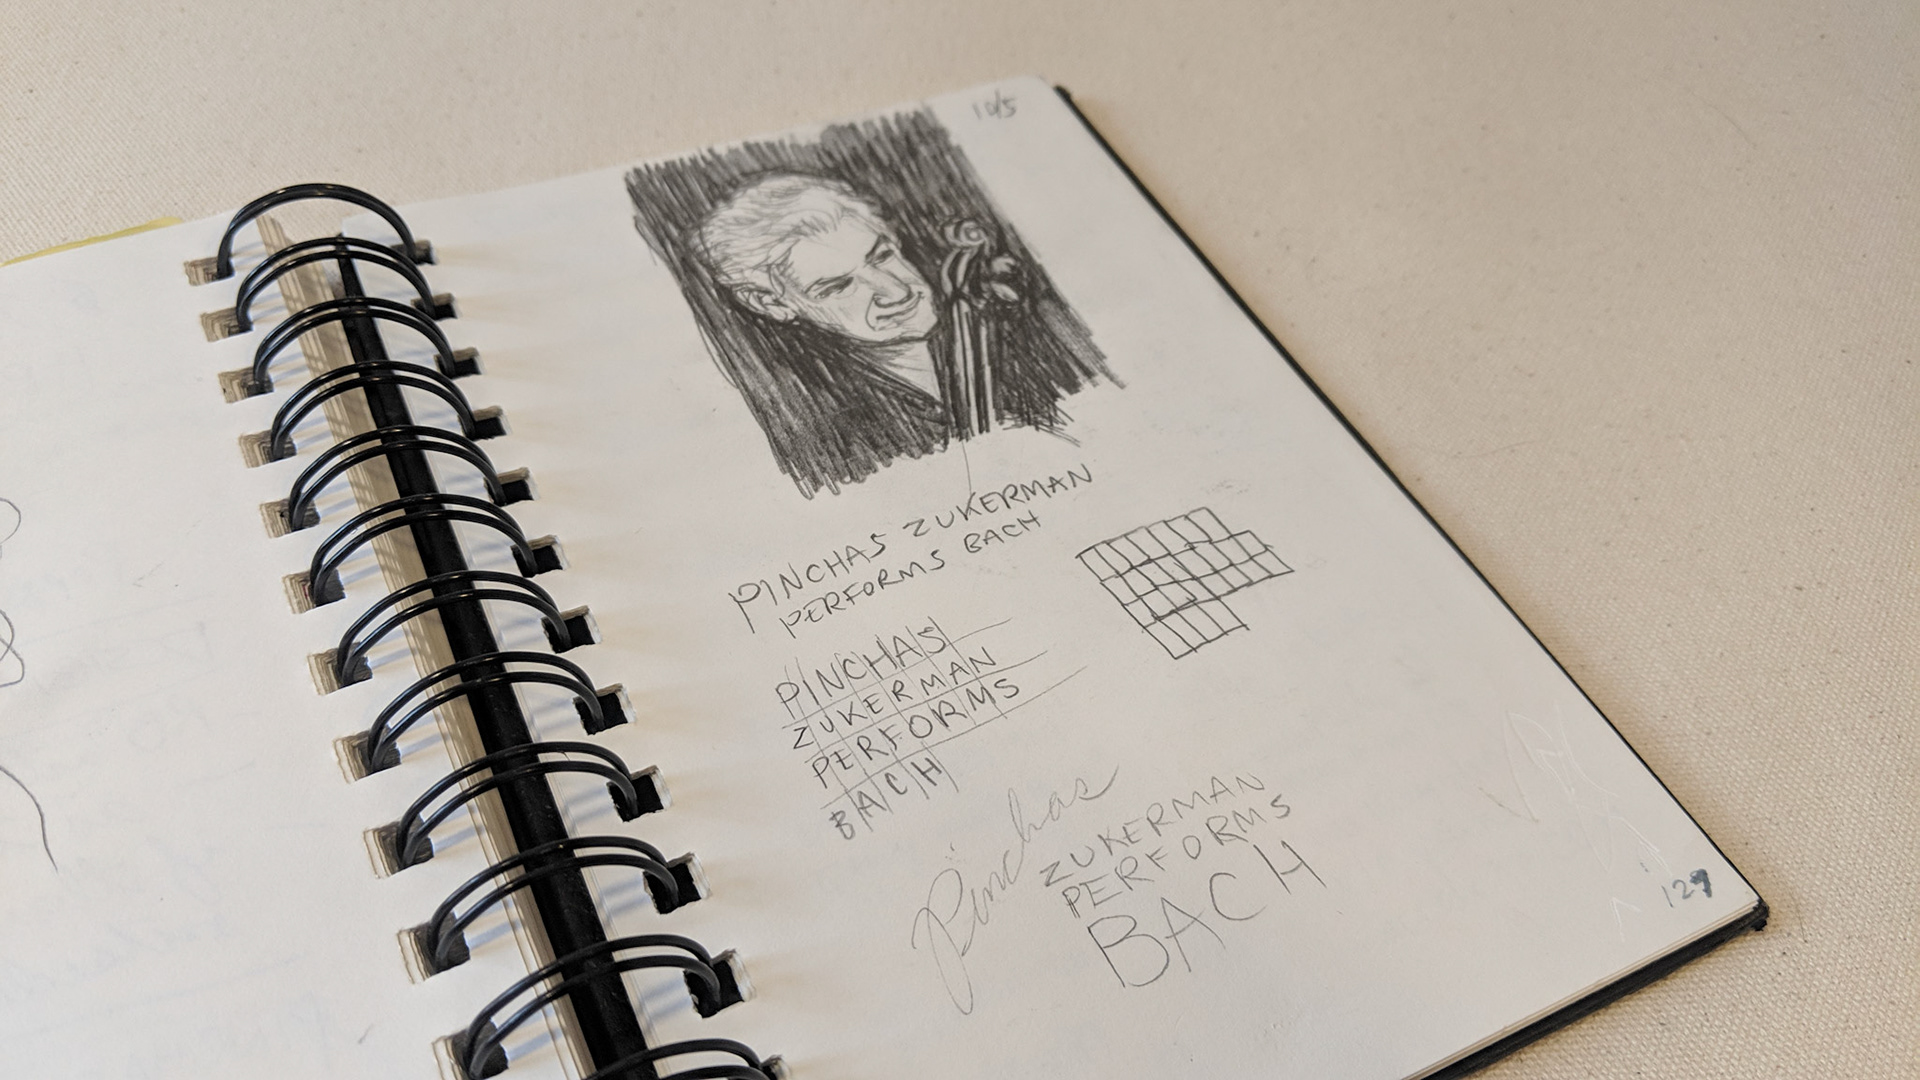 10/5
PINCHAS ZUKERMAN
PERFORMS BACH
PINCHAS
ZUKERMAN
PERFORMS
BACH
Pinchas
ZUKERMAN
PERFORMS
BACH
127